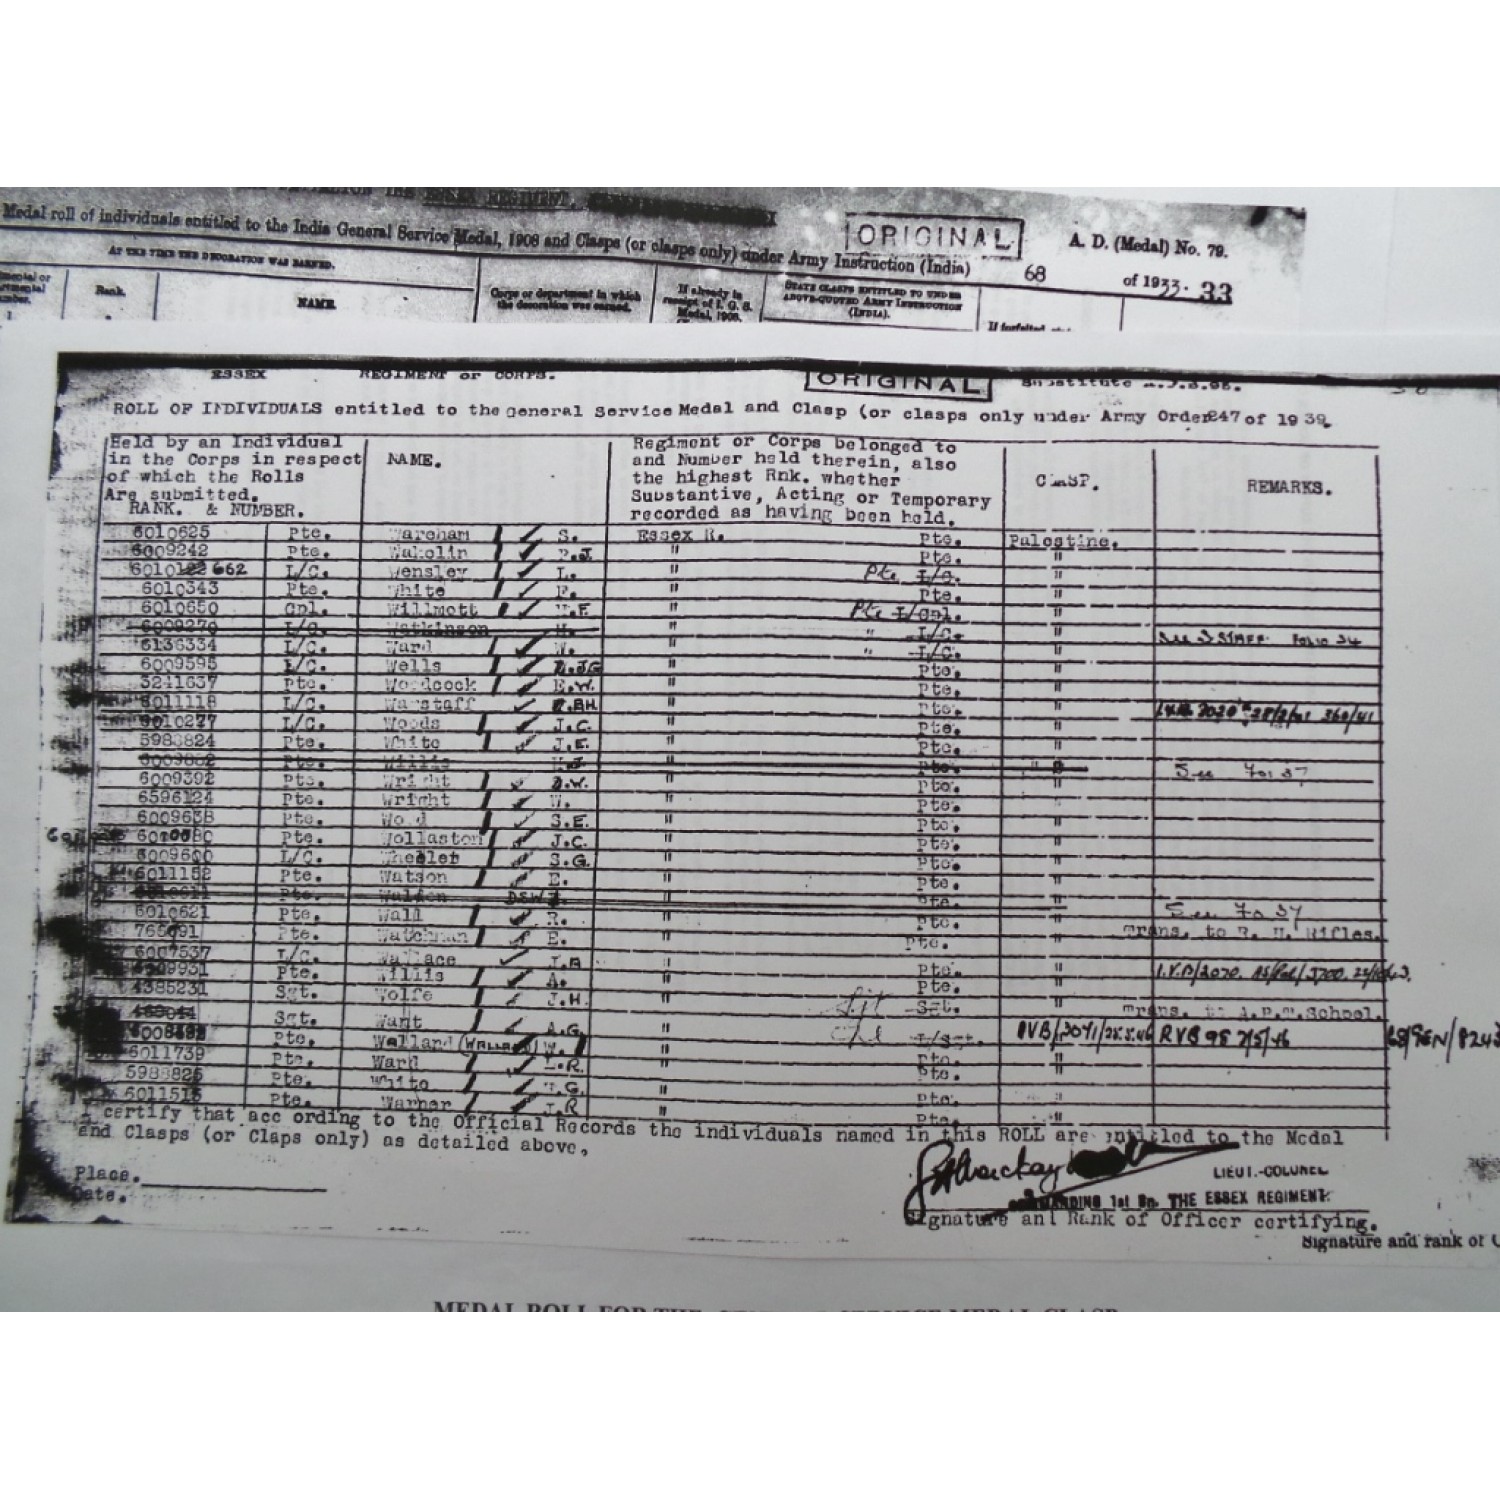 ESSEX REGIMENT.
Medal roll of individuals entitled to the India General Service Medal, 1908 and Clasps (or clasps only) under Army Instruction (India) 68 of 1933. 33
ORIGINAL
A. D. (Medal) No. 79.
AT THE TIME THE DECORATION WAS EARNED.
Rank.
NAME.
Corps or department in which
the decoration was earned.
If already in
receipt of I. G. S.
Medal, 1908.
STATE CLASPS ENTITLED TO UNDER
ABOVE-QUOTED ARMY INSTRUCTION
(INDIA).
If forfeited
ESSEX REGIMENT or CORPS.
ORIGINAL
Substitute
ROLL OF INDIVIDUALS entitled to the General Service Medal and Clasp (or clasps only under Army Order 247 of 1939.
Held by an Individual
in the Corps in respect
of which the Rolls
Are submitted.
RANK. & NUMBER.
NAME.
Regiment or Corps belonged to
and Number held therein, also
the highest Rnk. whether
Substantive, Acting or Temporary
recorded as having been held.
CLASP.
REMARKS.
6010625 Pte. Wareham S. Essex R. Pte. Palestine.
6009242 Pte. Wakelin J. " Pte. "
6010122 662 L/C. Wensley L. " Pte L/C. "
6010343 Pte. White F. " Pte. "
6010650 Cpl. Willmott F. " Pte L/Cpl. "
6009270 L/C. Watkinson H. " " L/C. " See S STAFF Folio 34
6136334 L/C. Ward W. " " L/C. "
6009595 L/C. Wells J.G " Pte. "
3241637 Pte. Woodcock E.W. " Pte. "
6011118 L/C. Warstaff B.H. " Pte. "
6010277 L/C. Woods J.C. " Pte. "
5983824 Pte. White J.E. " Pte. "
6009852 Pte. Willis H.J " Pte. " See Fol 37
6009392 Pte. Wright D.W. " Pte. "
6596124 Pte. Wright W. " Pte. "
6009638 Pte. Wood S.E. " Pte. "
Pte. Wollaston J.C. " Pte. "
6009600 L/C. Wheeler S.G. " Pte. "
6011152 Pte. Watson E. " Pte. "
Pte. Walden " Pte. See Fo 37
6010621 Pte. Wall R. " Pte. "
Pte. Watchman E. " Pte. " Trans. to Rifles.
6007537 L/C. Wallace " Pte. "
Pte. Willis A. " Pte. "
4385231 Sgt. Wolfe J.H. " Sgt. " Trans. to A.P.T. School.
Sgt. Want A.G. " L/Sgt. RVB 98 2/5/46
Pte. Welland (WALLAND) W. " Pte. "
6011739 Pte. Ward L.R. " Pte. "
5983826 Pte. White G. " Pte. "
6011515 Pte. Warner J.R " Pte. "
certify that according to the Official Records the individuals named in this ROLL are entitled to the Medal
and Clasps (or Claps only) as detailed above,
Place.
Date.
LIEUT.-COLONEL
COMMANDING 1st Bn. THE ESSEX REGIMENT.
Signature and Rank of Officer certifying.
Signature and rank of
MEDAL ROLL FOR THE